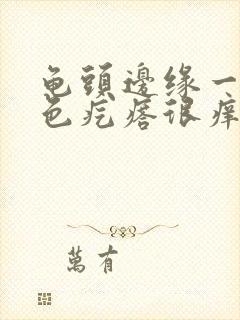 龟頭邊缘一
色疙瘩很痒
萬有